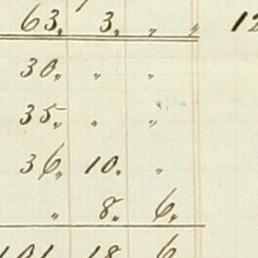 63„ 3„ „ „ 12
30„ „ „
35„ „ „
36„ 10„ „
„ 8„ 6„
101 18 6